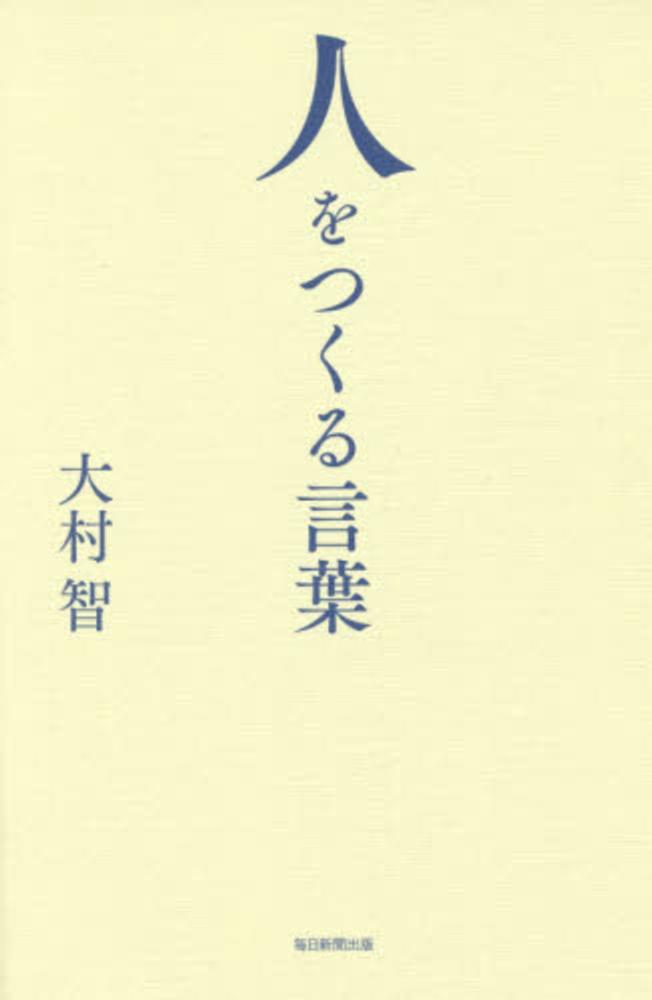 人をつくる言葉
大村智
毎日新聞出版